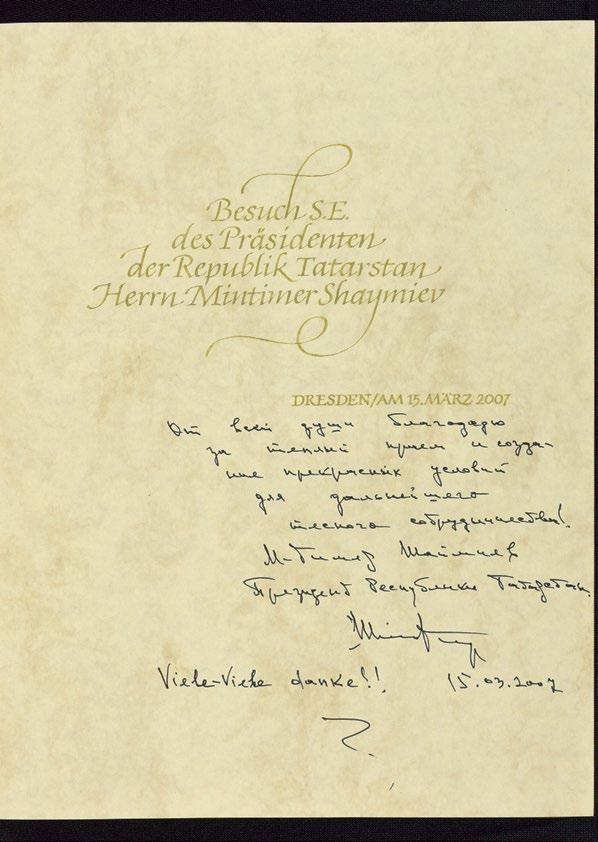 Besuch S.E.
des Präsidenten
der Republik Tatarstan
Herrn Mintimer Shaymiev
DRESDEN/AM 15. MÄRZ 2007
От всей души благодарю
за теплый прием и созда-
ние прекрасных условий
для дальнейшего
тесного сотрудничества!
М-Тимер Шаймиев
Президент Республики Татарстан
Viele-Viele danke!! 15.03.2007